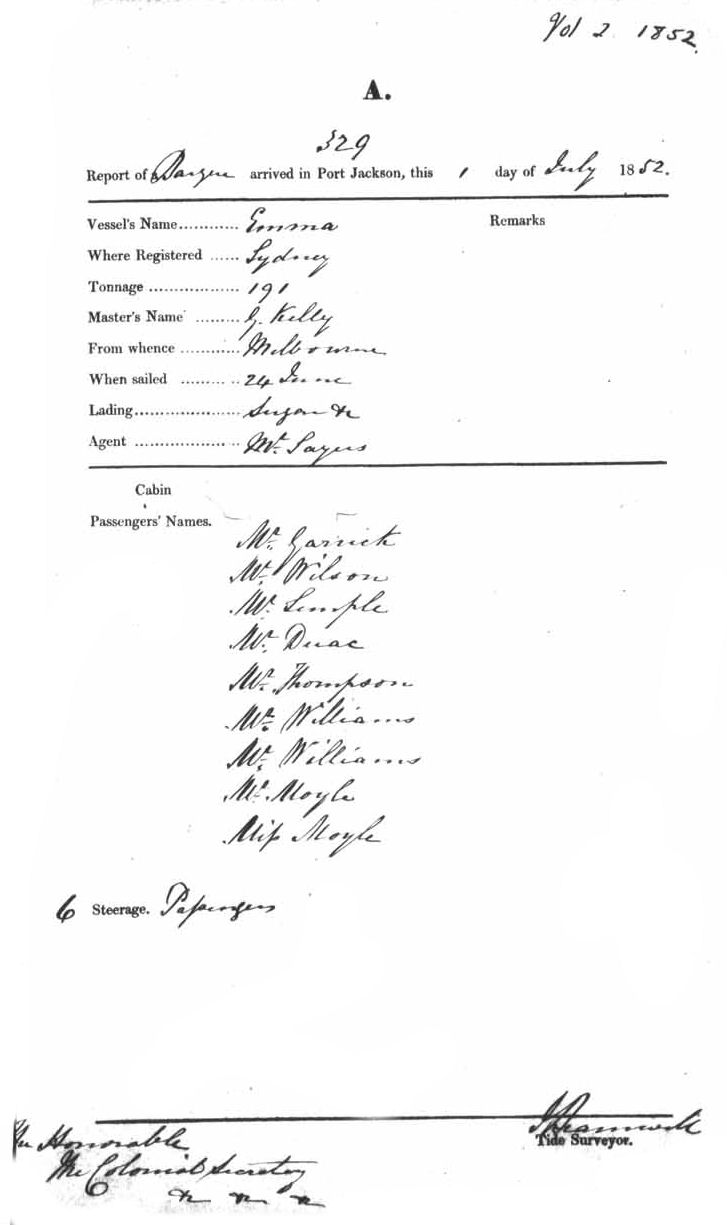 Vol 2 1852
A.
329
Report of Barque arrived in Port Jackson, this 1 day of July 1852.
Vessel's Name............ Emma
Remarks
Where Registered ...... Sydney
Tonnage .................. 191
Master's Name ......... Kelly
From whence ............ Melbourne
When sailed ........... 24 June
Lading..................... Sugar &c
Agent .................... Mr. Sayers
Cabin
Passengers' Names.
Mr. Garrick
Mr. Wilson
Mr. Semple
Mr. Duac
Mr. Thompson
Mr. Williams
Mr. Williams
Moyle
Miss Moyle
6 Steerage. Passengers
Tide Surveyor.
The Honorable
The Colonial Secretary
&c &c &c